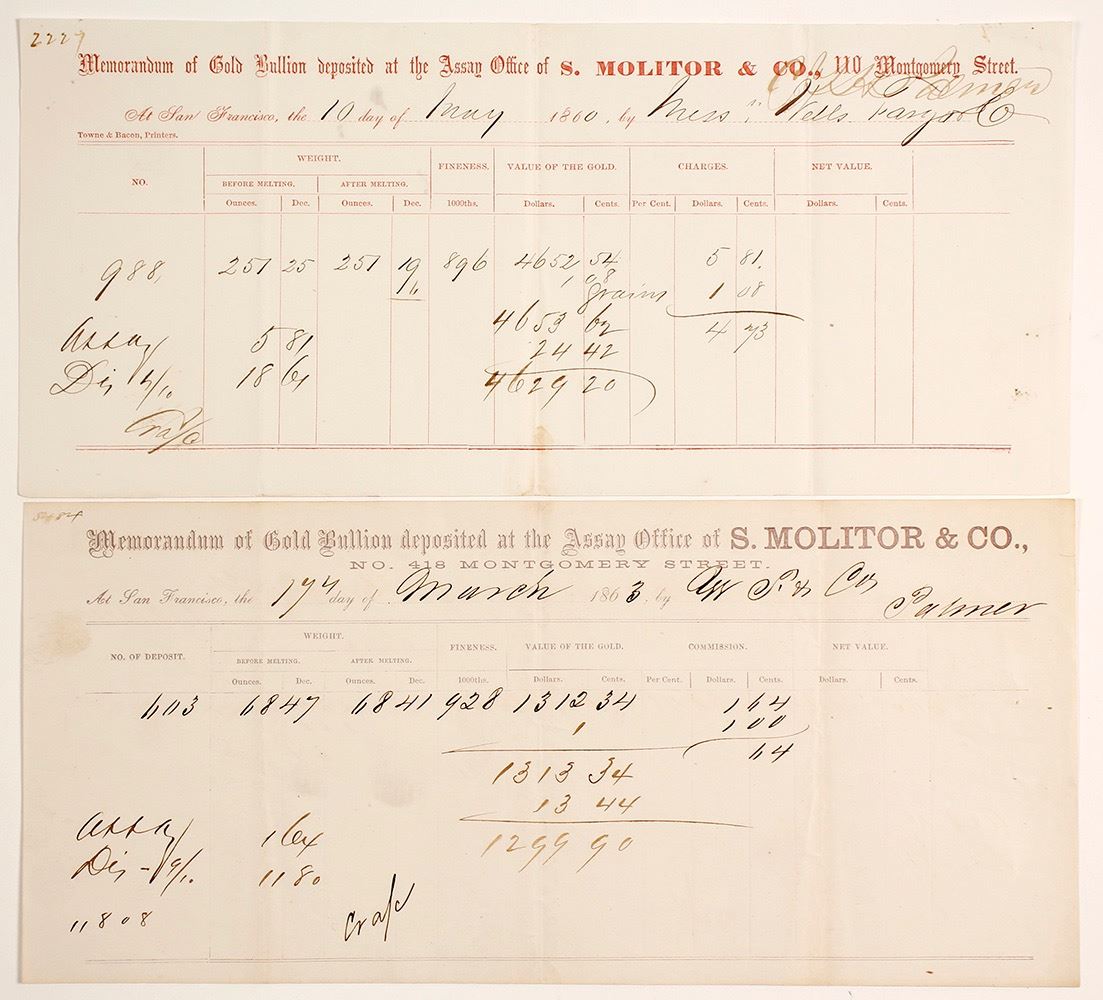 2227
Memorandum of Gold Bullion deposited at the Assay Office of S. MOLITOR & CO., 110 Montgomery Street.
Palmer
At San Francisco, the 10 day of May 1860, by Mess rs Wells Fargo & Co
Towne & Bacon, Printers.
NO. WEIGHT. FINENESS. VALUE OF THE GOLD. CHARGES. NET VALUE.
BEFORE MELTING. AFTER MELTING.
Ounces. Dec. Ounces. Dec. 1000ths. Dollars. Cents. Per Cent. Dollars. Cents. Dollars. Cents.
988, 251 25 251 19 896 4652 54 5 81.
1,08
grains 1 08
4653 62 4 73
Assay 5 81 24 42
Dis 4/10 18 61 4629 20
Cr a/c
Memorandum of Gold Bullion deposited at the Assay Office of S. MOLITOR & CO.,
NO. 418 MONTGOMERY STREET.
At San Francisco, the 17th day of March 1863, by W F & Co
Palmer
NO. OF DEPOSIT. WEIGHT. FINENESS. VALUE OF THE GOLD. COMMISSION. NET VALUE.
BEFORE MELTING. AFTER MELTING.
Ounces. Dec. Ounces. Dec. 1000ths. Dollars. Cents. Per Cent. Dollars. Cents. Dollars. Cents.
603 68 47 68 41 928 1312 34 1 64
1 1 00
64
1313 34
13 44
Assay 1 64 1299 90
Dis - 9/10. 11 80
11808 Cr a/c